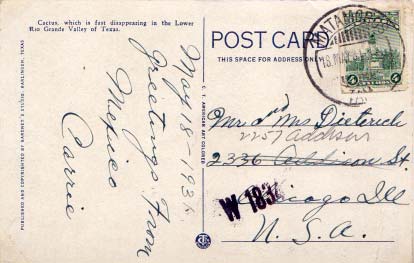 Cactus, which is fast disappearing in the Lower
Rio Grande Valley of Texas.
May 18-1936
Greetings From
Mexico
Carrie
PUBLISHED AND COPYRIGHTED BY
STUDIO, HARLINGEN, TEXAS
C. T. AMERICAN ART COLORED
POST CARD
THIS SPACE FOR ADDRESS ONLY
MATAMOROS
18 MAY
4
Mr and Mrs Dietrich
2257 Addison
2336 Addison St.
Chicago Ill
U.S.A.
W 183